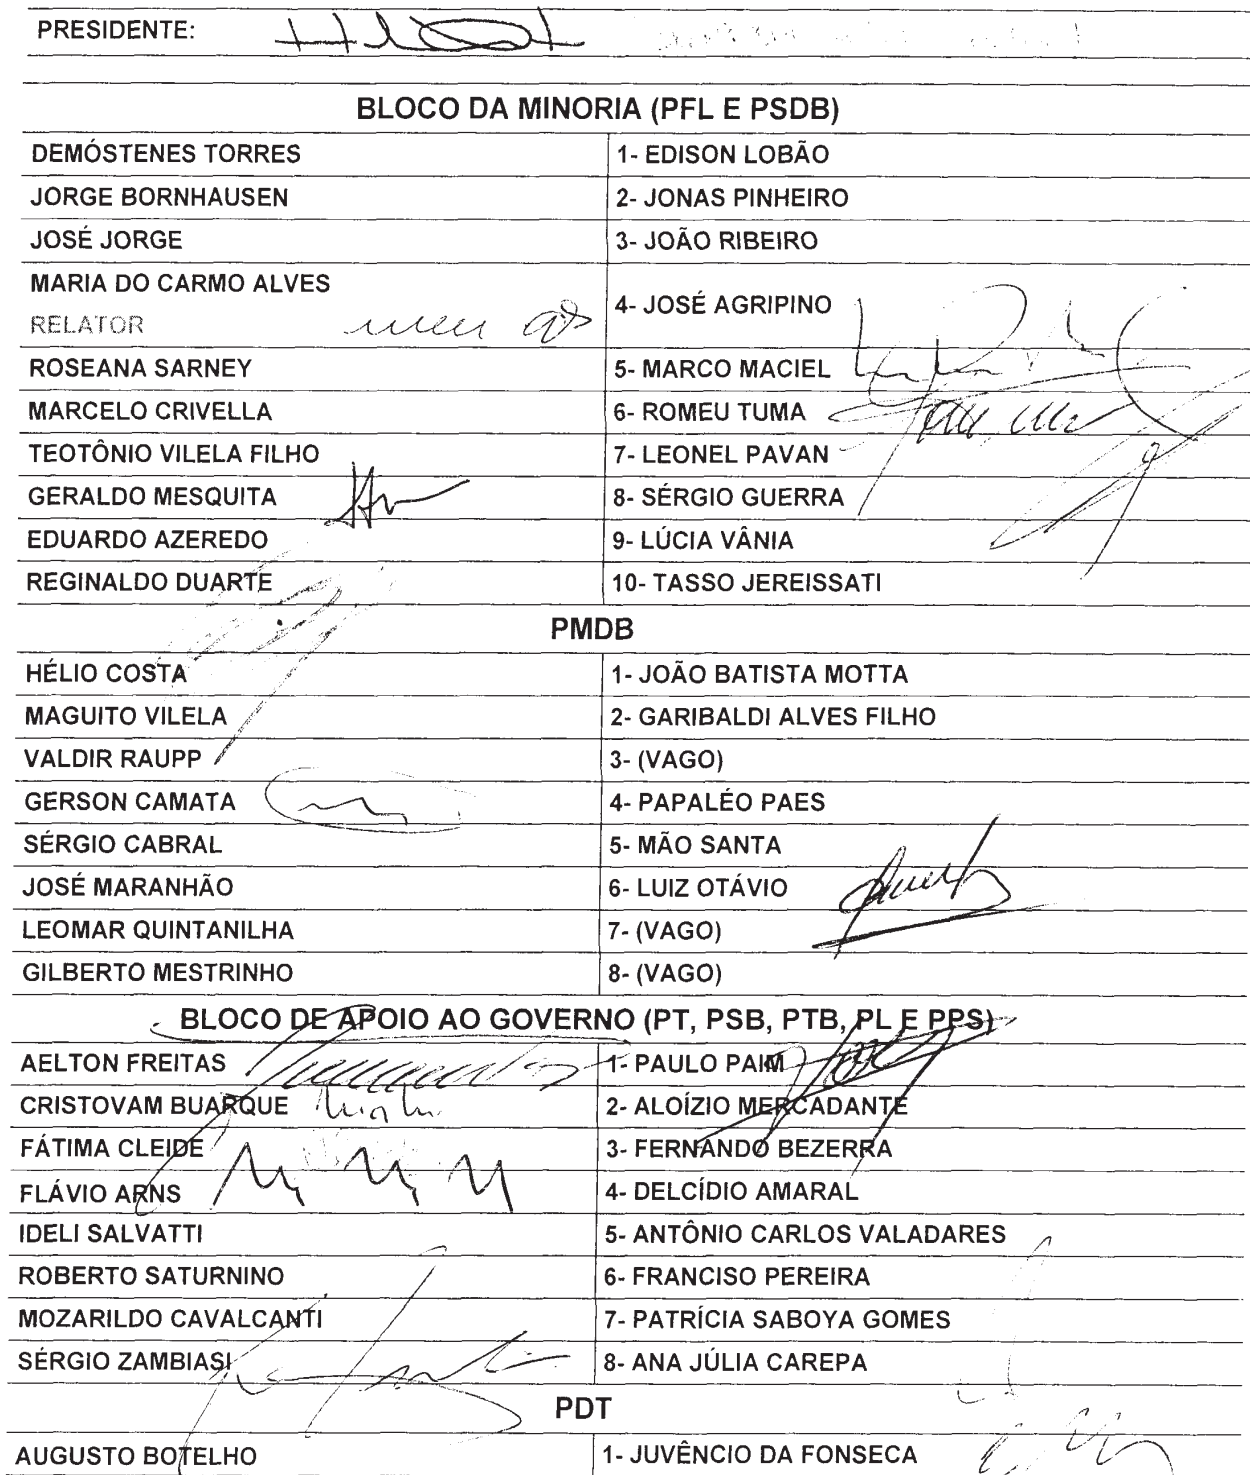 PRESIDENTE:
BLOCO DA MINORIA (PFL E PSDB)
DEMÓSTENES TORRES 1- EDISON LOBÃO
JORGE BORNHAUSEN 2- JONAS PINHEIRO
JOSÉ JORGE 3- JOÃO RIBEIRO
MARIA DO CARMO ALVES
RELATOR 4- JOSÉ AGRIPINO
ROSEANA SARNEY 5- MARCO MACIEL
MARCELO CRIVELLA 6- ROMEU TUMA
TEOTÔNIO VILELA FILHO 7- LEONEL PAVAN
GERALDO MESQUITA 8- SÉRGIO GUERRA
EDUARDO AZEREDO 9- LÚCIA VÂNIA
REGINALDO DUARTE 10- TASSO JEREISSATI
PMDB
HÉLIO COSTA 1- JOÃO BATISTA MOTTA
MAGUITO VILELA 2- GARIBALDI ALVES FILHO
VALDIR RAUPP 3- (VAGO)
GERSON CAMATA 4- PAPALÉO PAES
SÉRGIO CABRAL 5- MÃO SANTA
JOSÉ MARANHÃO 6- LUIZ OTÁVIO
LEOMAR QUINTANILHA 7- (VAGO)
GILBERTO MESTRINHO 8- (VAGO)
BLOCO DE APOIO AO GOVERNO (PT, PSB, PTB, PL E PPS)
AELTON FREITAS 1- PAULO PAIM
CRISTOVAM BUARQUE 2- ALOÍZIO MERCADANTE
FÁTIMA CLEIDE 3- FERNANDO BEZERRA
FLÁVIO ARNS 4- DELCÍDIO AMARAL
IDELI SALVATTI 5- ANTÔNIO CARLOS VALADARES
ROBERTO SATURNINO 6- FRANCISO PEREIRA
MOZARILDO CAVALCANTI 7- PATRÍCIA SABOYA GOMES
SÉRGIO ZAMBIASI 8- ANA JÚLIA CAREPA
PDT
AUGUSTO BOTELHO 1- JUVÊNCIO DA FONSECA